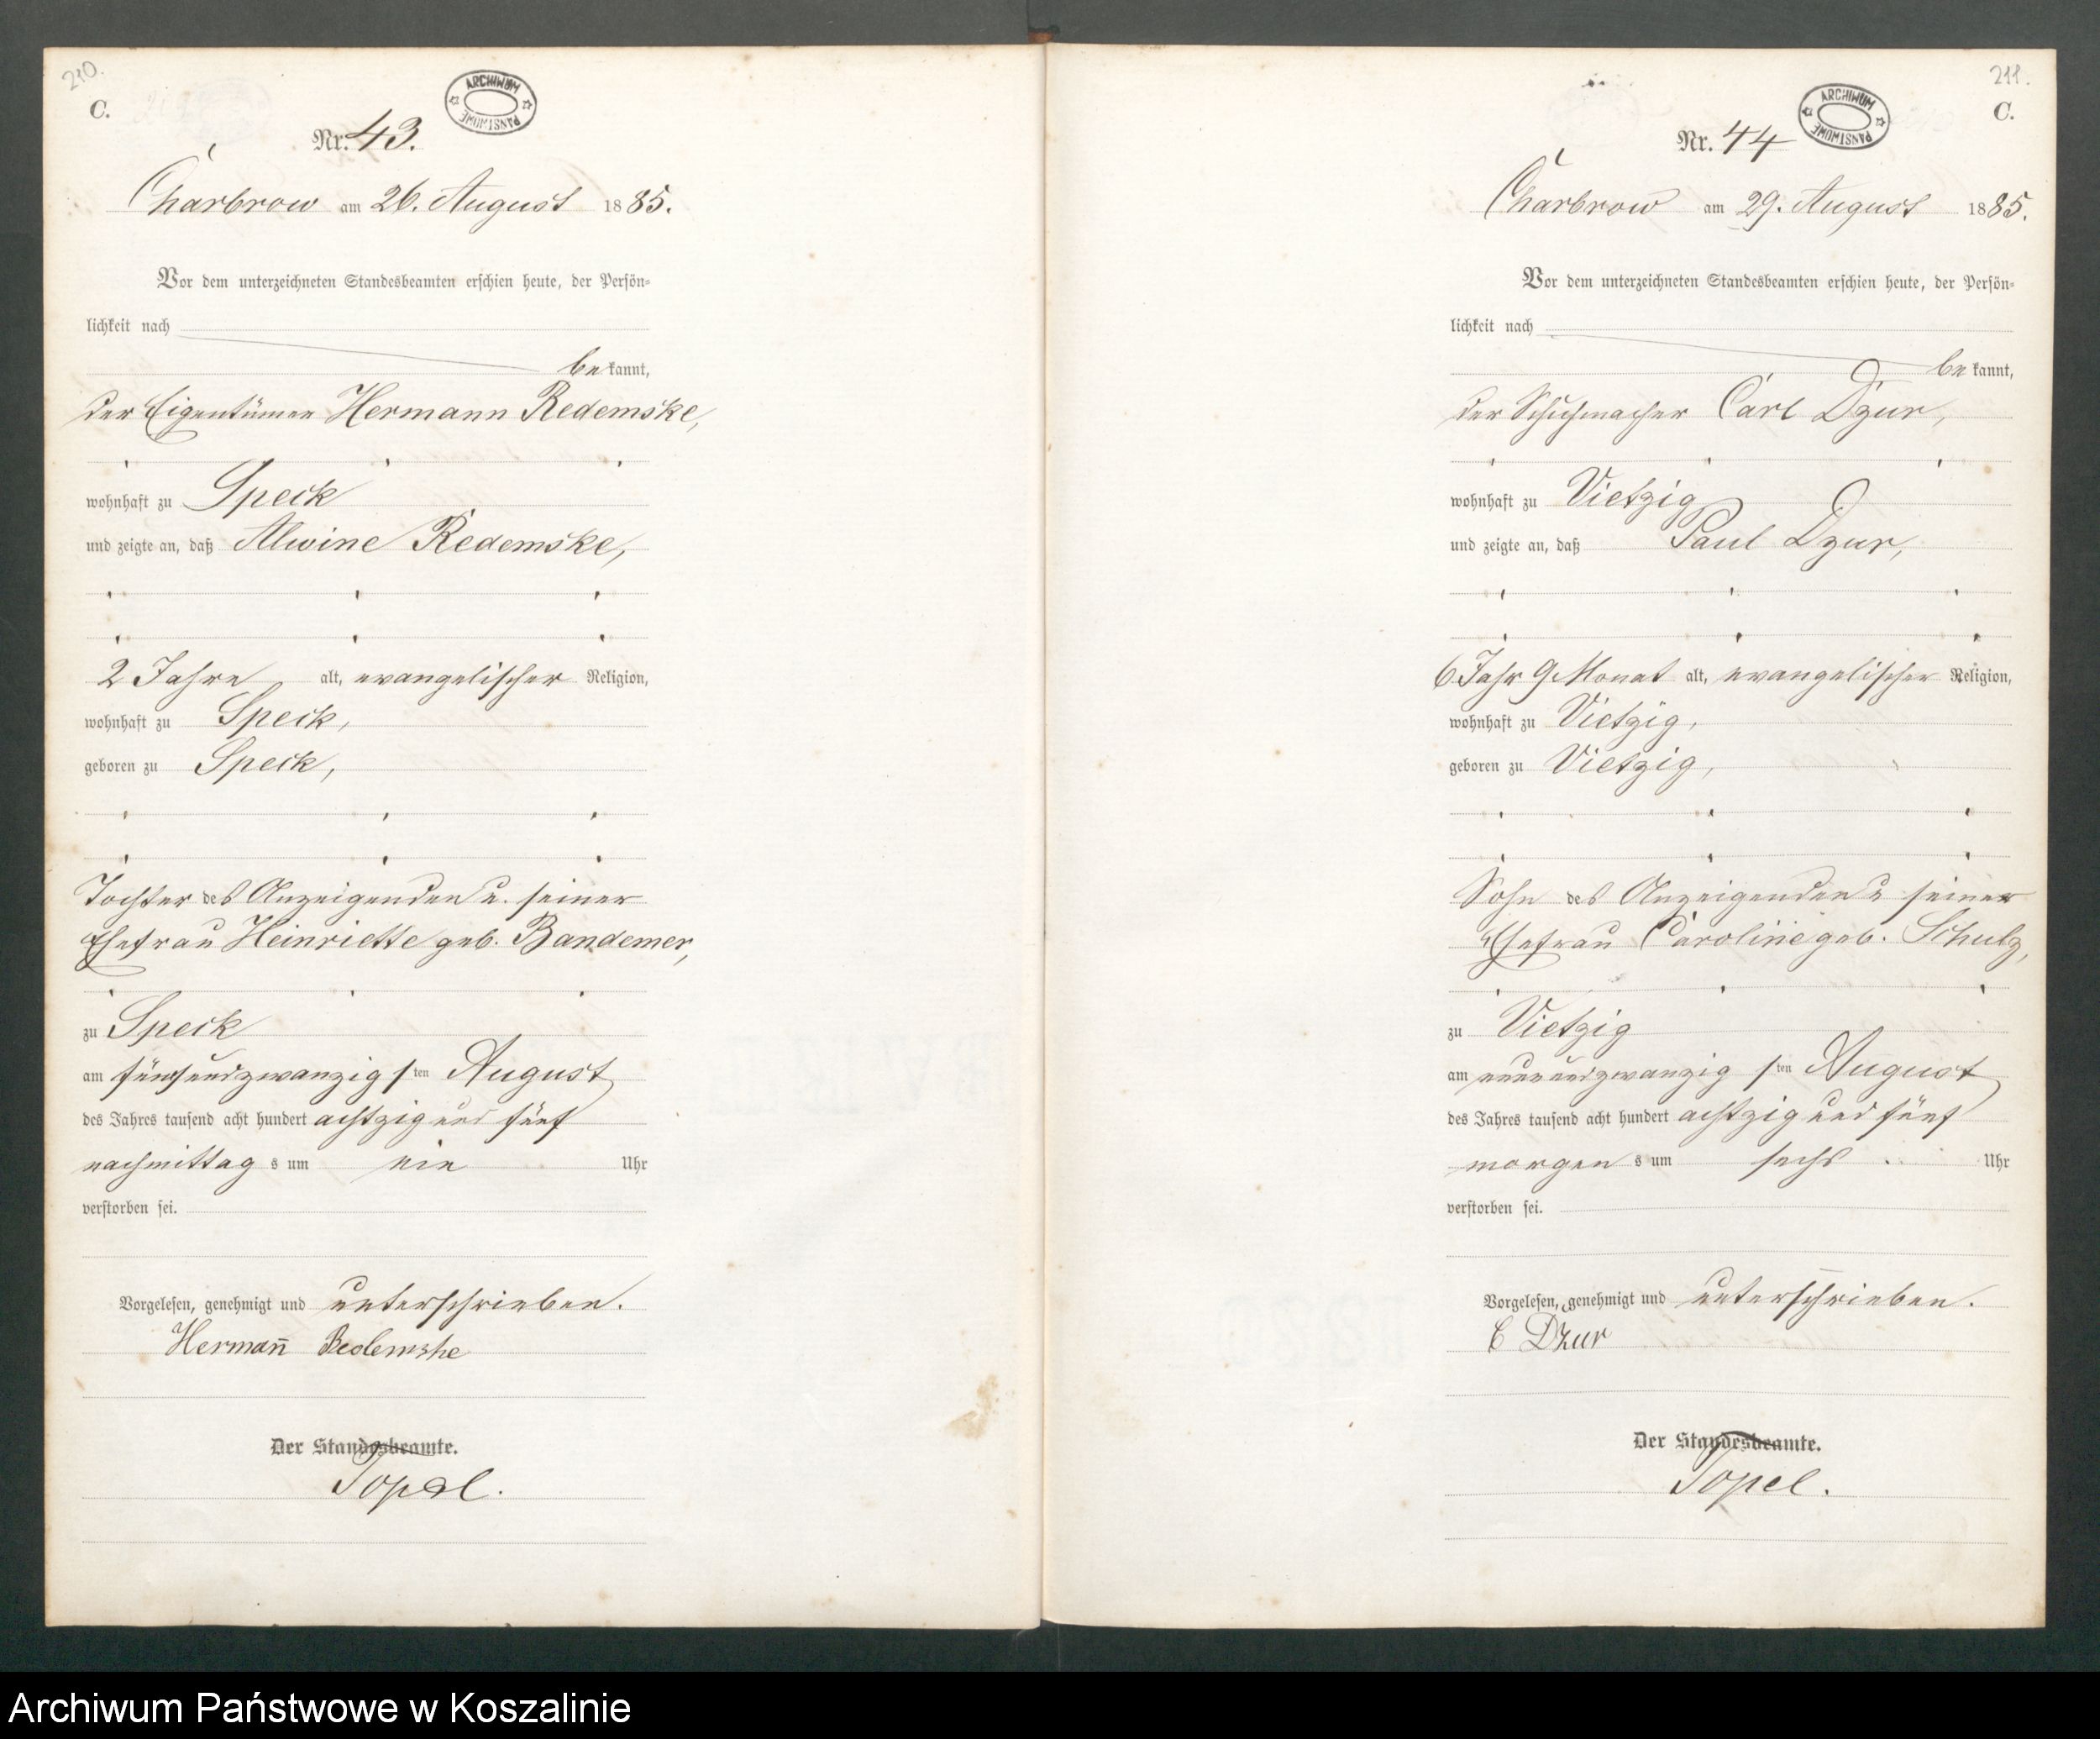 210.
C.
ARCHIWUM PAŃSTWOWE
Nr. 43.
Charbrow am 26. August 1885.
Vor dem unterzeichneten Standesbeamten erschien heute, der Persön-
lichkeit nach
bekannt,
der Eigentümer Hermann Redemske,
wohnhaft zu Speck
und zeigte an, daß Alwine Redemske,
2 Jahre alt, evangelischer Religion,
wohnhaft zu Speck,
geboren zu Speck,
Tochter des Anzeigenden u. seiner
Ehefrau Heinriette geb. Bandemer,
zu Speck
am fünfundzwanzigsten August
des Jahres tausend acht hundert achtzig und fünf
nachmittags um ein Uhr
verstorben sei.
Vorgelesen, genehmigt und unterschrieben.
Hermañ Redemske
Der Standesbeamte.
Topel.
211.
C.
ARCHIWUM PAŃSTWOWE
Nr. 44
Charbrow am 29. August 1885.
Vor dem unterzeichneten Standesbeamten erschien heute, der Persön-
lichkeit nach
bekannt,
der Schuhmacher Carl Dzur,
wohnhaft zu Vietzig
und zeigte an, daß Paul Dzur,
6 Jahr 9 Monat alt, evangelischer Religion,
wohnhaft zu Vietzig,
geboren zu Vietzig,
Sohn des Anzeigenden u seiner
Ehefrau Caroline geb. Schulz,
zu Vietzig
am neunundzwanzigsten August
des Jahres tausend acht hundert achtzig und fünf
morgens um sechs Uhr
verstorben sei.
Vorgelesen, genehmigt und unterschrieben.
C Dzur
Der Standesbeamte.
Topel.
Archiwum Państwowe w Koszalinie